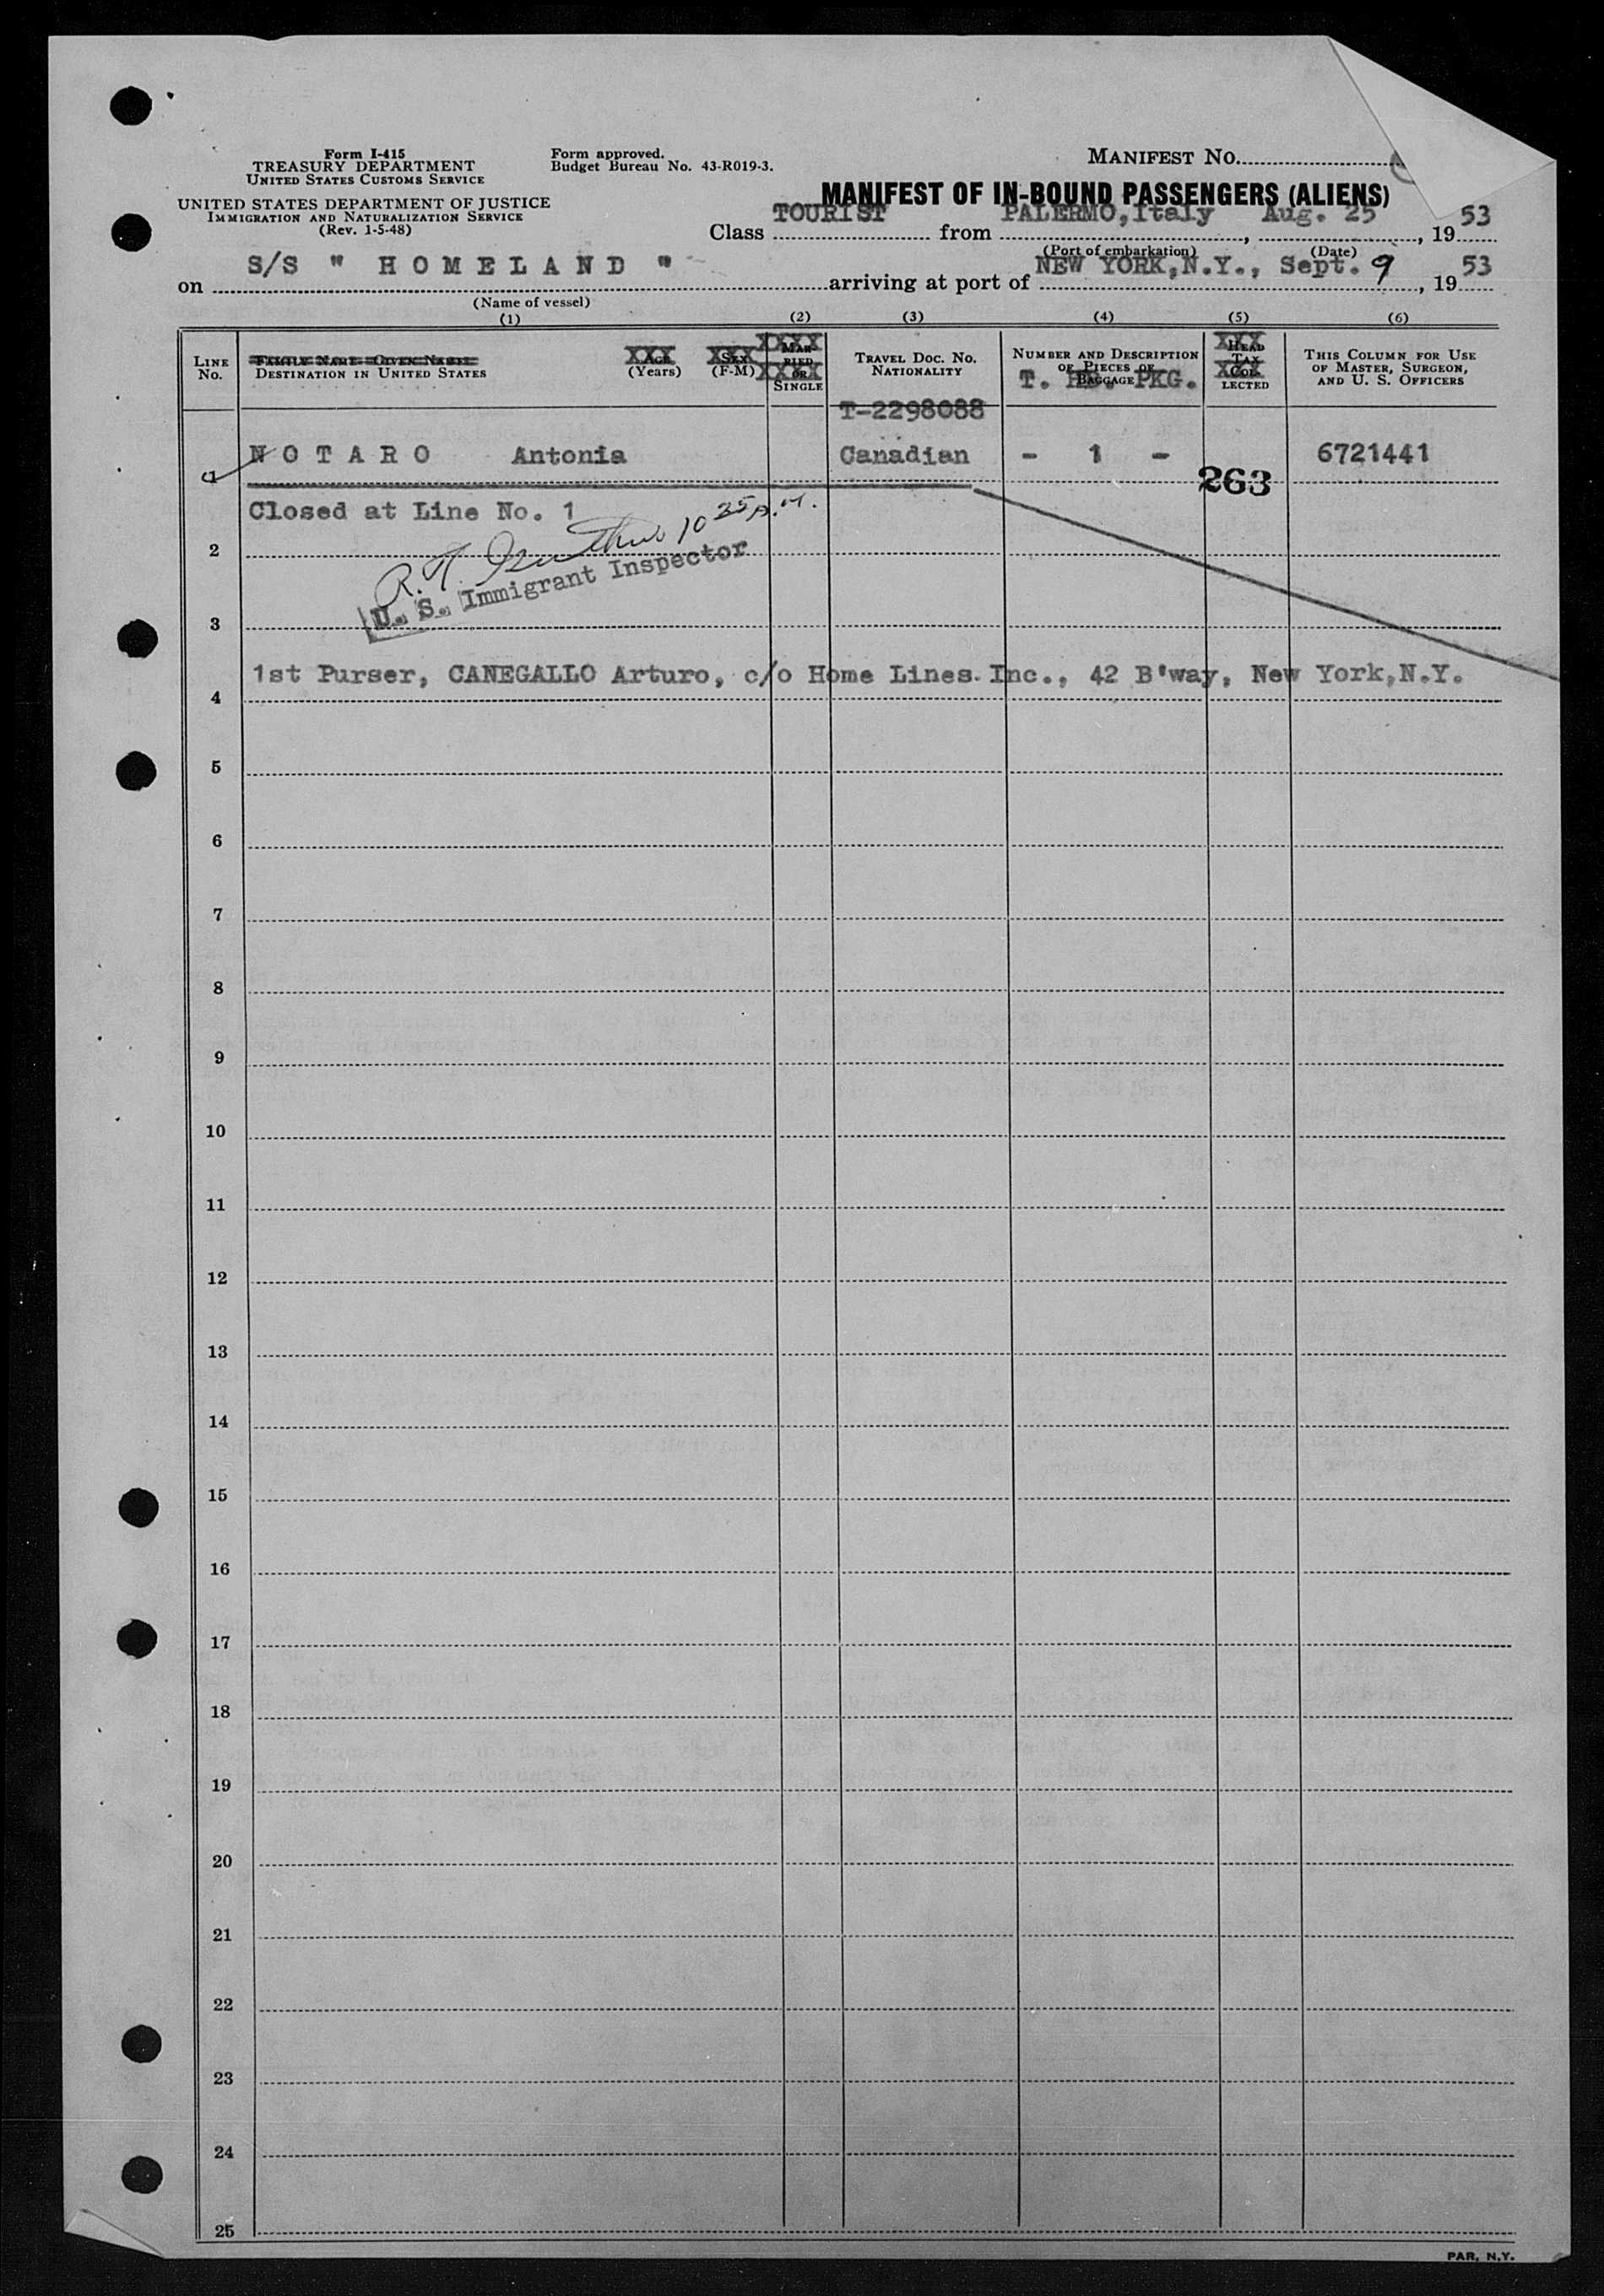 Form I-415
TREASURY DEPARTMENT
UNITED STATES CUSTOMS SERVICE
UNITED STATES DEPARTMENT OF JUSTICE
IMMIGRATION AND NATURALIZATION SERVICE
(Rev. 1-5-48)
Form approved.
Budget Bureau No. 43-R019-3.
MANIFEST NO.
MANIFEST OF IN-BOUND PASSENGERS (ALIENS)
Class TOURIST from PALERMO, Italy , Aug. 25 , 19 53
(Port of embarkation) (Date)
on S/S " H O M E L A N D " arriving at port of NEW YORK, N.Y., Sept. 9 , 19 53
(Name of vessel)
(1) (2) (3) (4) (5) (6)
LINE No.
FAMILY NAME—GIVEN NAME
DESTINATION IN UNITED STATES
XXX AGE (Years)
XXX SEX (F-M)
XXXX MARRIED OR XXXX SINGLE
TRAVEL DOC. NO. NATIONALITY
NUMBER AND DESCRIPTION OF PIECES OF BAGGAGE
T. HB. PKG.
XXX HEAD TAX XXX COLLECTED
THIS COLUMN FOR USE OF MASTER, SURGEON, AND U. S. OFFICERS
T-2298088
1 N O T A R O Antonia Canadian - 1 - 6721441
263
Closed at Line No. 1
10 35 A.M.
2
U. S. Immigrant Inspector
3
1st Purser, CANEGALLO Arturo, c/o Home Lines Inc., 42 B'way, New York, N.Y.
4
5
6
7
8
9
10
11
12
13
14
15
16
17
18
19
20
21
22
23
24
25
PAR, N.Y.